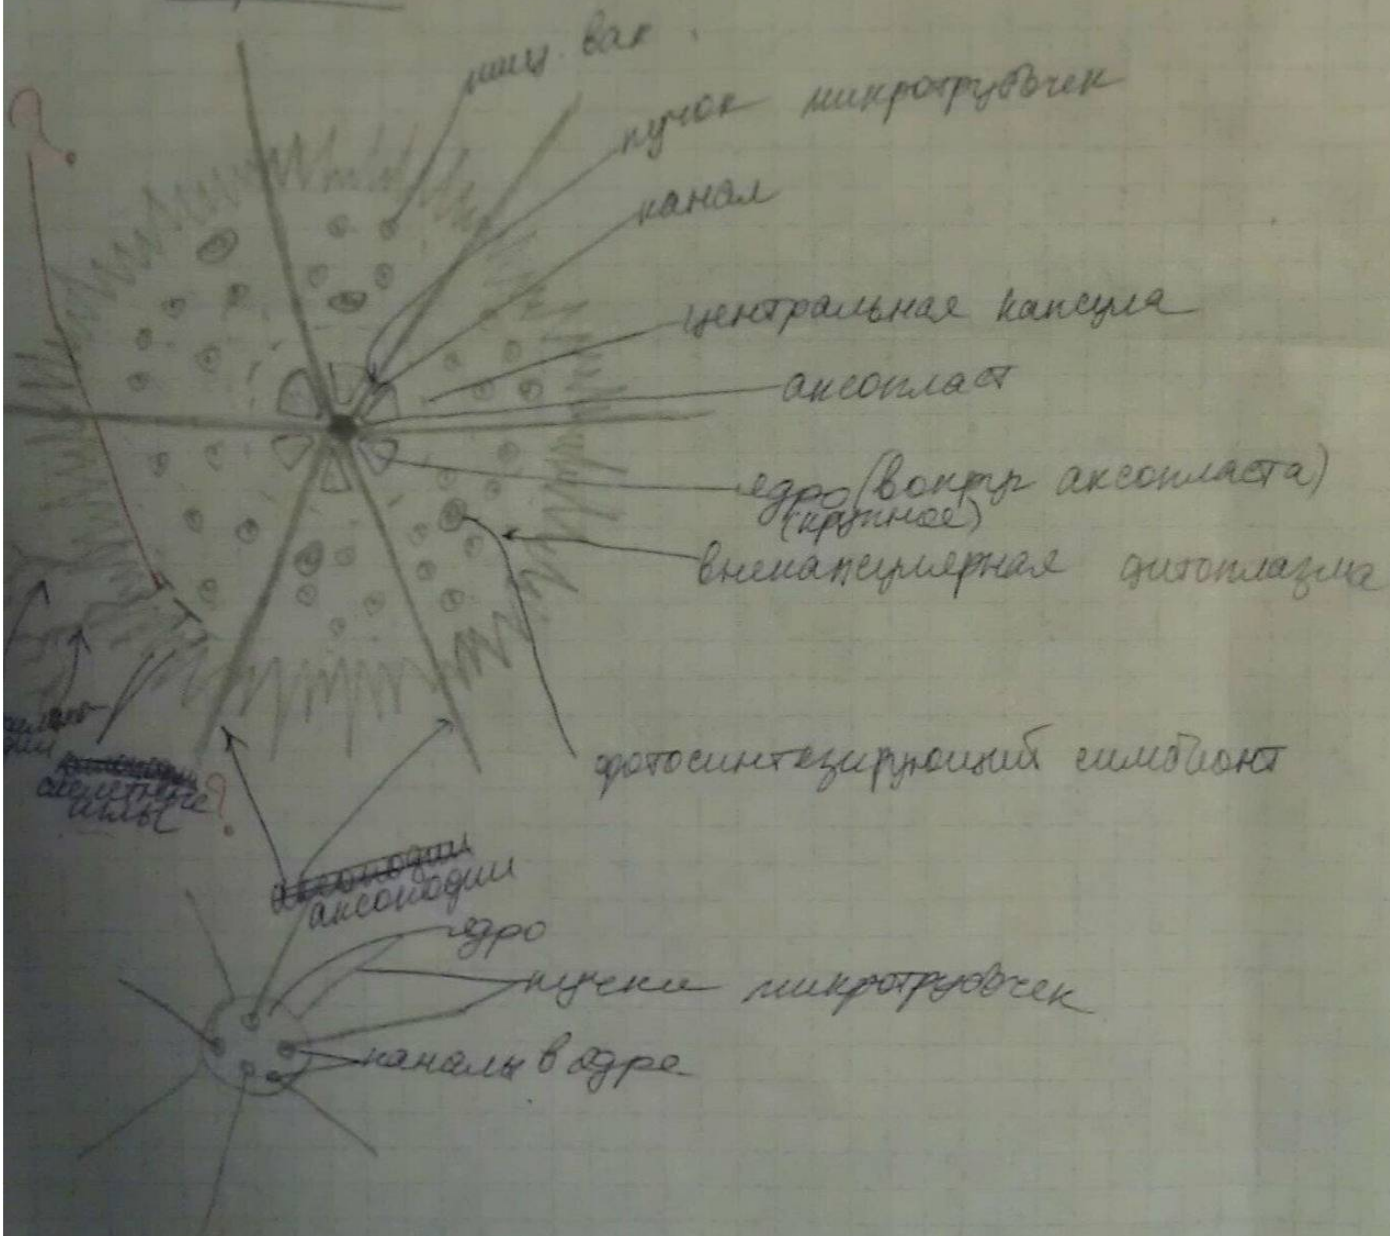 ?
пищ. вак.
пучок микротрубочек
канал
центральная капсула
аксопласт
ядро (вокруг аксопласта)
(крупное)
внекапсулярная цитоплазма
фотосинтезирующий симбионт
скелетные ?
иглы
аксоподии
аксоподии
ядро
пучки микротрубочек
каналы в ядре